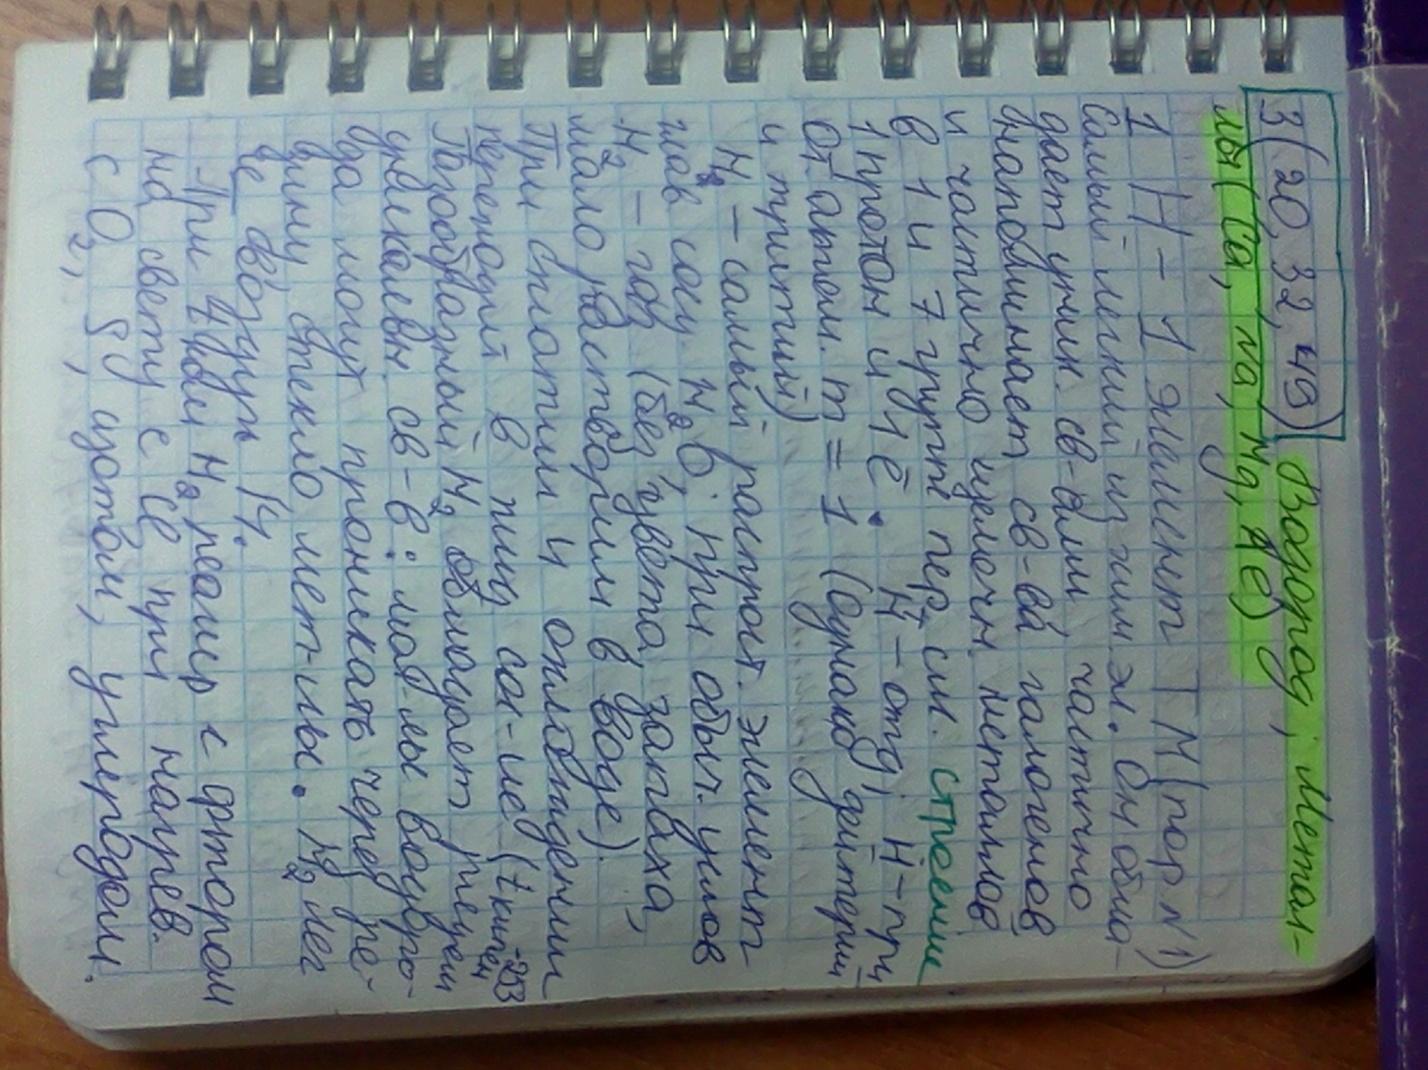 3(20,32,49) Водород, Метал-
лы (Ca, Na, Mg, Fe)
1 H – 1 элемент ТМ (пор N1)
Самый легкий из хим. эл. Он обла-
дает уник. св-вами частично
напоминает св-ва галогенов
и частично щелочн. металлов
в 1 и 7 группе пер. см. строении
1 протон и 1 ē. H⁺ – отд. H – при
от. атом. m = 1 (однако дейтерий
и тритий)
H₂ – самый распрост. элемент
глав соед H₂O. при обыч. услов
H₂ – газ (без цвета, запаха,
мало растворим в воде).
При сжатии и охлаждении
переходит в жид. сос-ие (t кипен -253
Газообразный H₂ обладает
св-в: мол-лы водоро-
да могут проникать через ре-
зину, стекло, мет-лы. H₂ лег
че воздуха 14.
При t ком H₂ реагир с фтором
на свету с Cl при нагрев.
с O₂, S, азотом, углеродом.